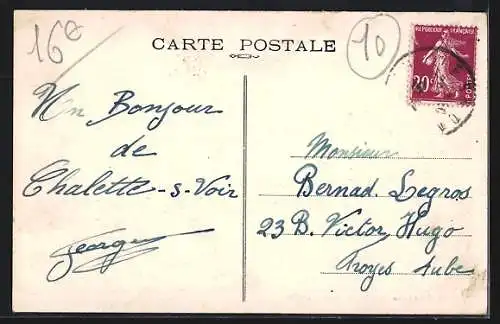 16e
CARTE POSTALE
10
REPUBLIQUE FRANÇAISE
20c
POSTES
Un Bonjour
de
Chalette-s-Voir
Georges
Monsieur
Bernad. Legros
23 B. Victor Hugo
Troyes Aube